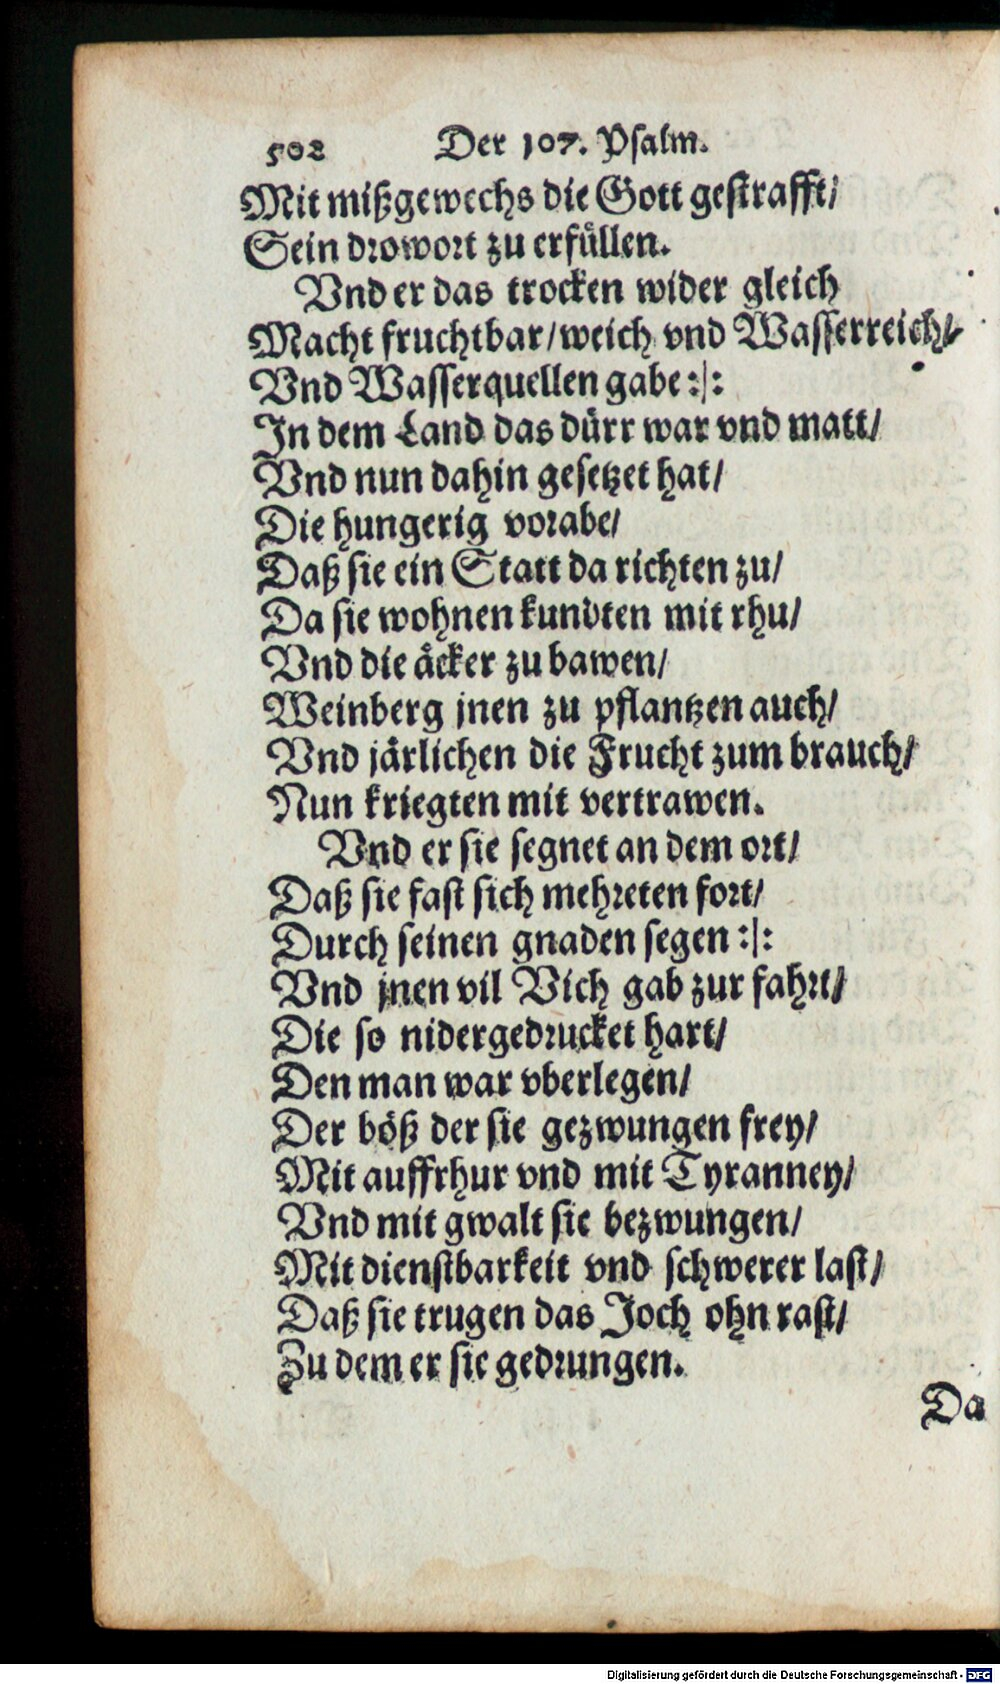 502 Der 107. Psalm.
Mit mißgewechs die Gott gestrafft/
Sein drowort zu erfüllen.
Vnd er das trocken wider gleich
Macht fruchtbar/weich vnd Wasserreich/
Vnd Wasserquellen gabe:|:
In dem Land das dürr war vnd matt/
Vnd nun dahin gesetzet hat/
Die hungerig vorabe/
Daß sie ein Statt da richten zu/
Da sie wohnen kundten mit rhu/
Vnd die äcker zu bawen/
Weinberg jnen zu pflantzen auch/
Vnd järlichen die Frucht zum brauch/
Nun kriegten mit vertrawen.
Vnd er sie segnet an dem ort/
Daß sie fast sich mehreten fort/
Durch seinen gnaden segen:|:
Vnd jnen vil Vich gab zur fahrt/
Die so nidergedrucket hart/
Den man war vberlegen/
Der böß der sie gezwungen frey/
Mit auffrhur vnd mit Tyranney/
Vnd mit gwalt sie bezwungen/
Mit dienstbarkeit vnd schwerer last/
Daß sie trugen das Joch ohn rast/
Zu dem er sie gedrungen.
Da
Digitalisierung gefördert durch die Deutsche Forschungsgemeinschaft - DFG